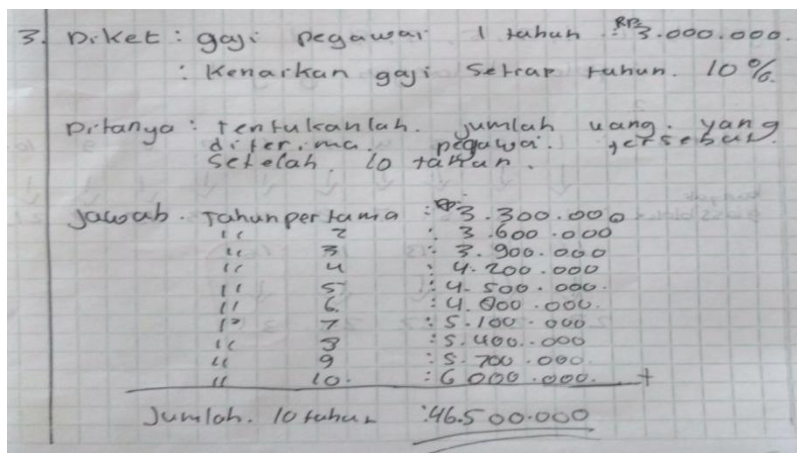 3. Diket : gaji pegawai 1 tahun : Rp. 3.000.000.
: Kenaikan gaji Setiap tahun. 10%.
Ditanya : Tentukanlah. jumlah uang. yang
diterima. pegawai. tersebut.
Setelah. 10 tahun.
Jawab. Tahun pertama : Rp. 3.300.000
" 2 : 3.600.000
" 3 : 3.900.000
" 4 : 4.200.000
" 5 : 4.500.000.
" 6. : 4.800.000.
" 7 : 5.100.000
" 8 : 5.400.000
" 9 : 5.700.000
" 10. : 6000.000. +
Jumlah. 10 tahun : 46.500.000